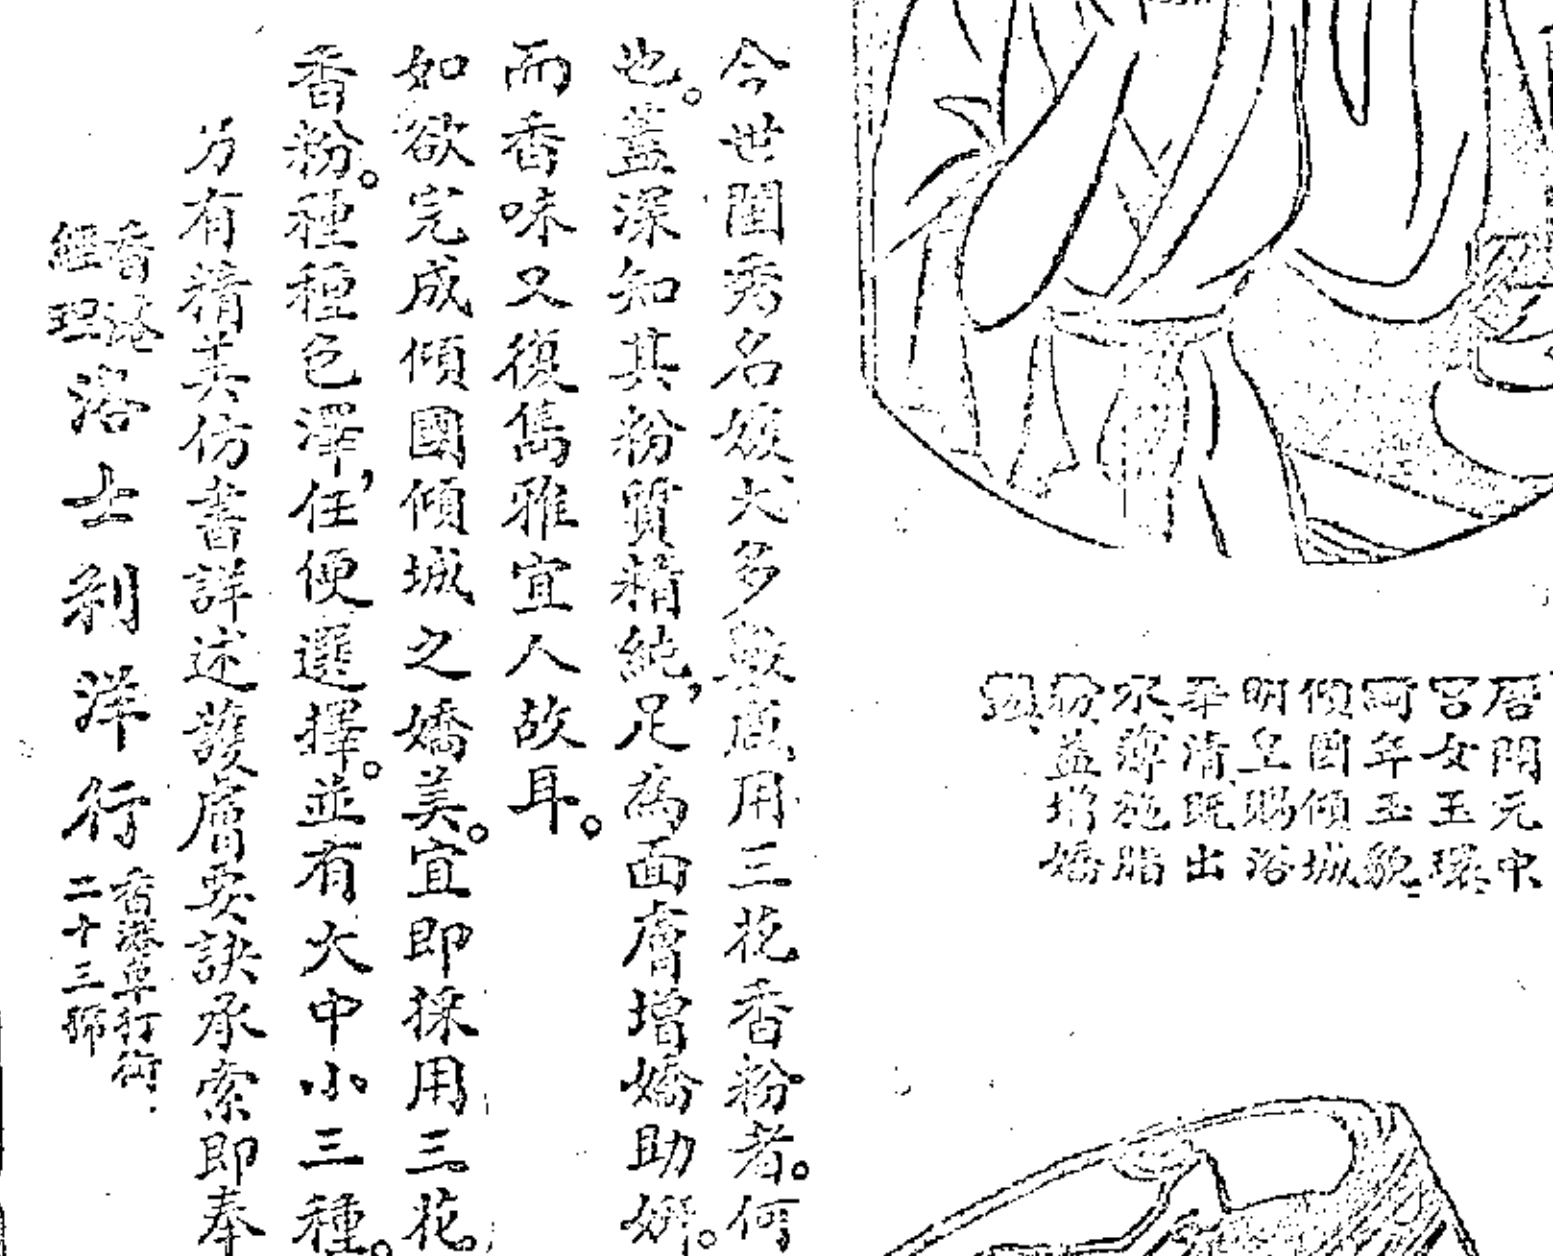 唐開元中
宮女玉環
年玉貌
傾國傾城
明皇賜浴
華清既出
水薄施脂
粉益增嬌
今世閨秀名媛大多數應用三花香粉者。何
也。蓋深知其粉質精純,足為面膚增嬌助妍。
而香味又復雋雅宜人故耳。
如欲完成傾國傾城之嬌美。宜即採用三花
香粉。種種色澤,任便選擇。並有大中小三種。
另有精美仿書詳述護膚要訣承索即奉
香港
經理
洛士利洋行
香港皁打街
二十三號